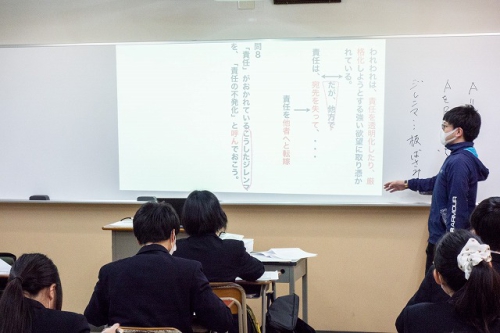 われわれは、責任を透明化したり、断
片化しようとする強い欲望に取り憑か
れている。
だが、他方で
責任は、宛先を失って、・・・
責任を他者へと転嫁
問8
「責任」がおかれているこうしたジレンマ
を、「責任の不発化」と呼んでおこう。
A
ジレンマ…板ばさみ
ARMOUR